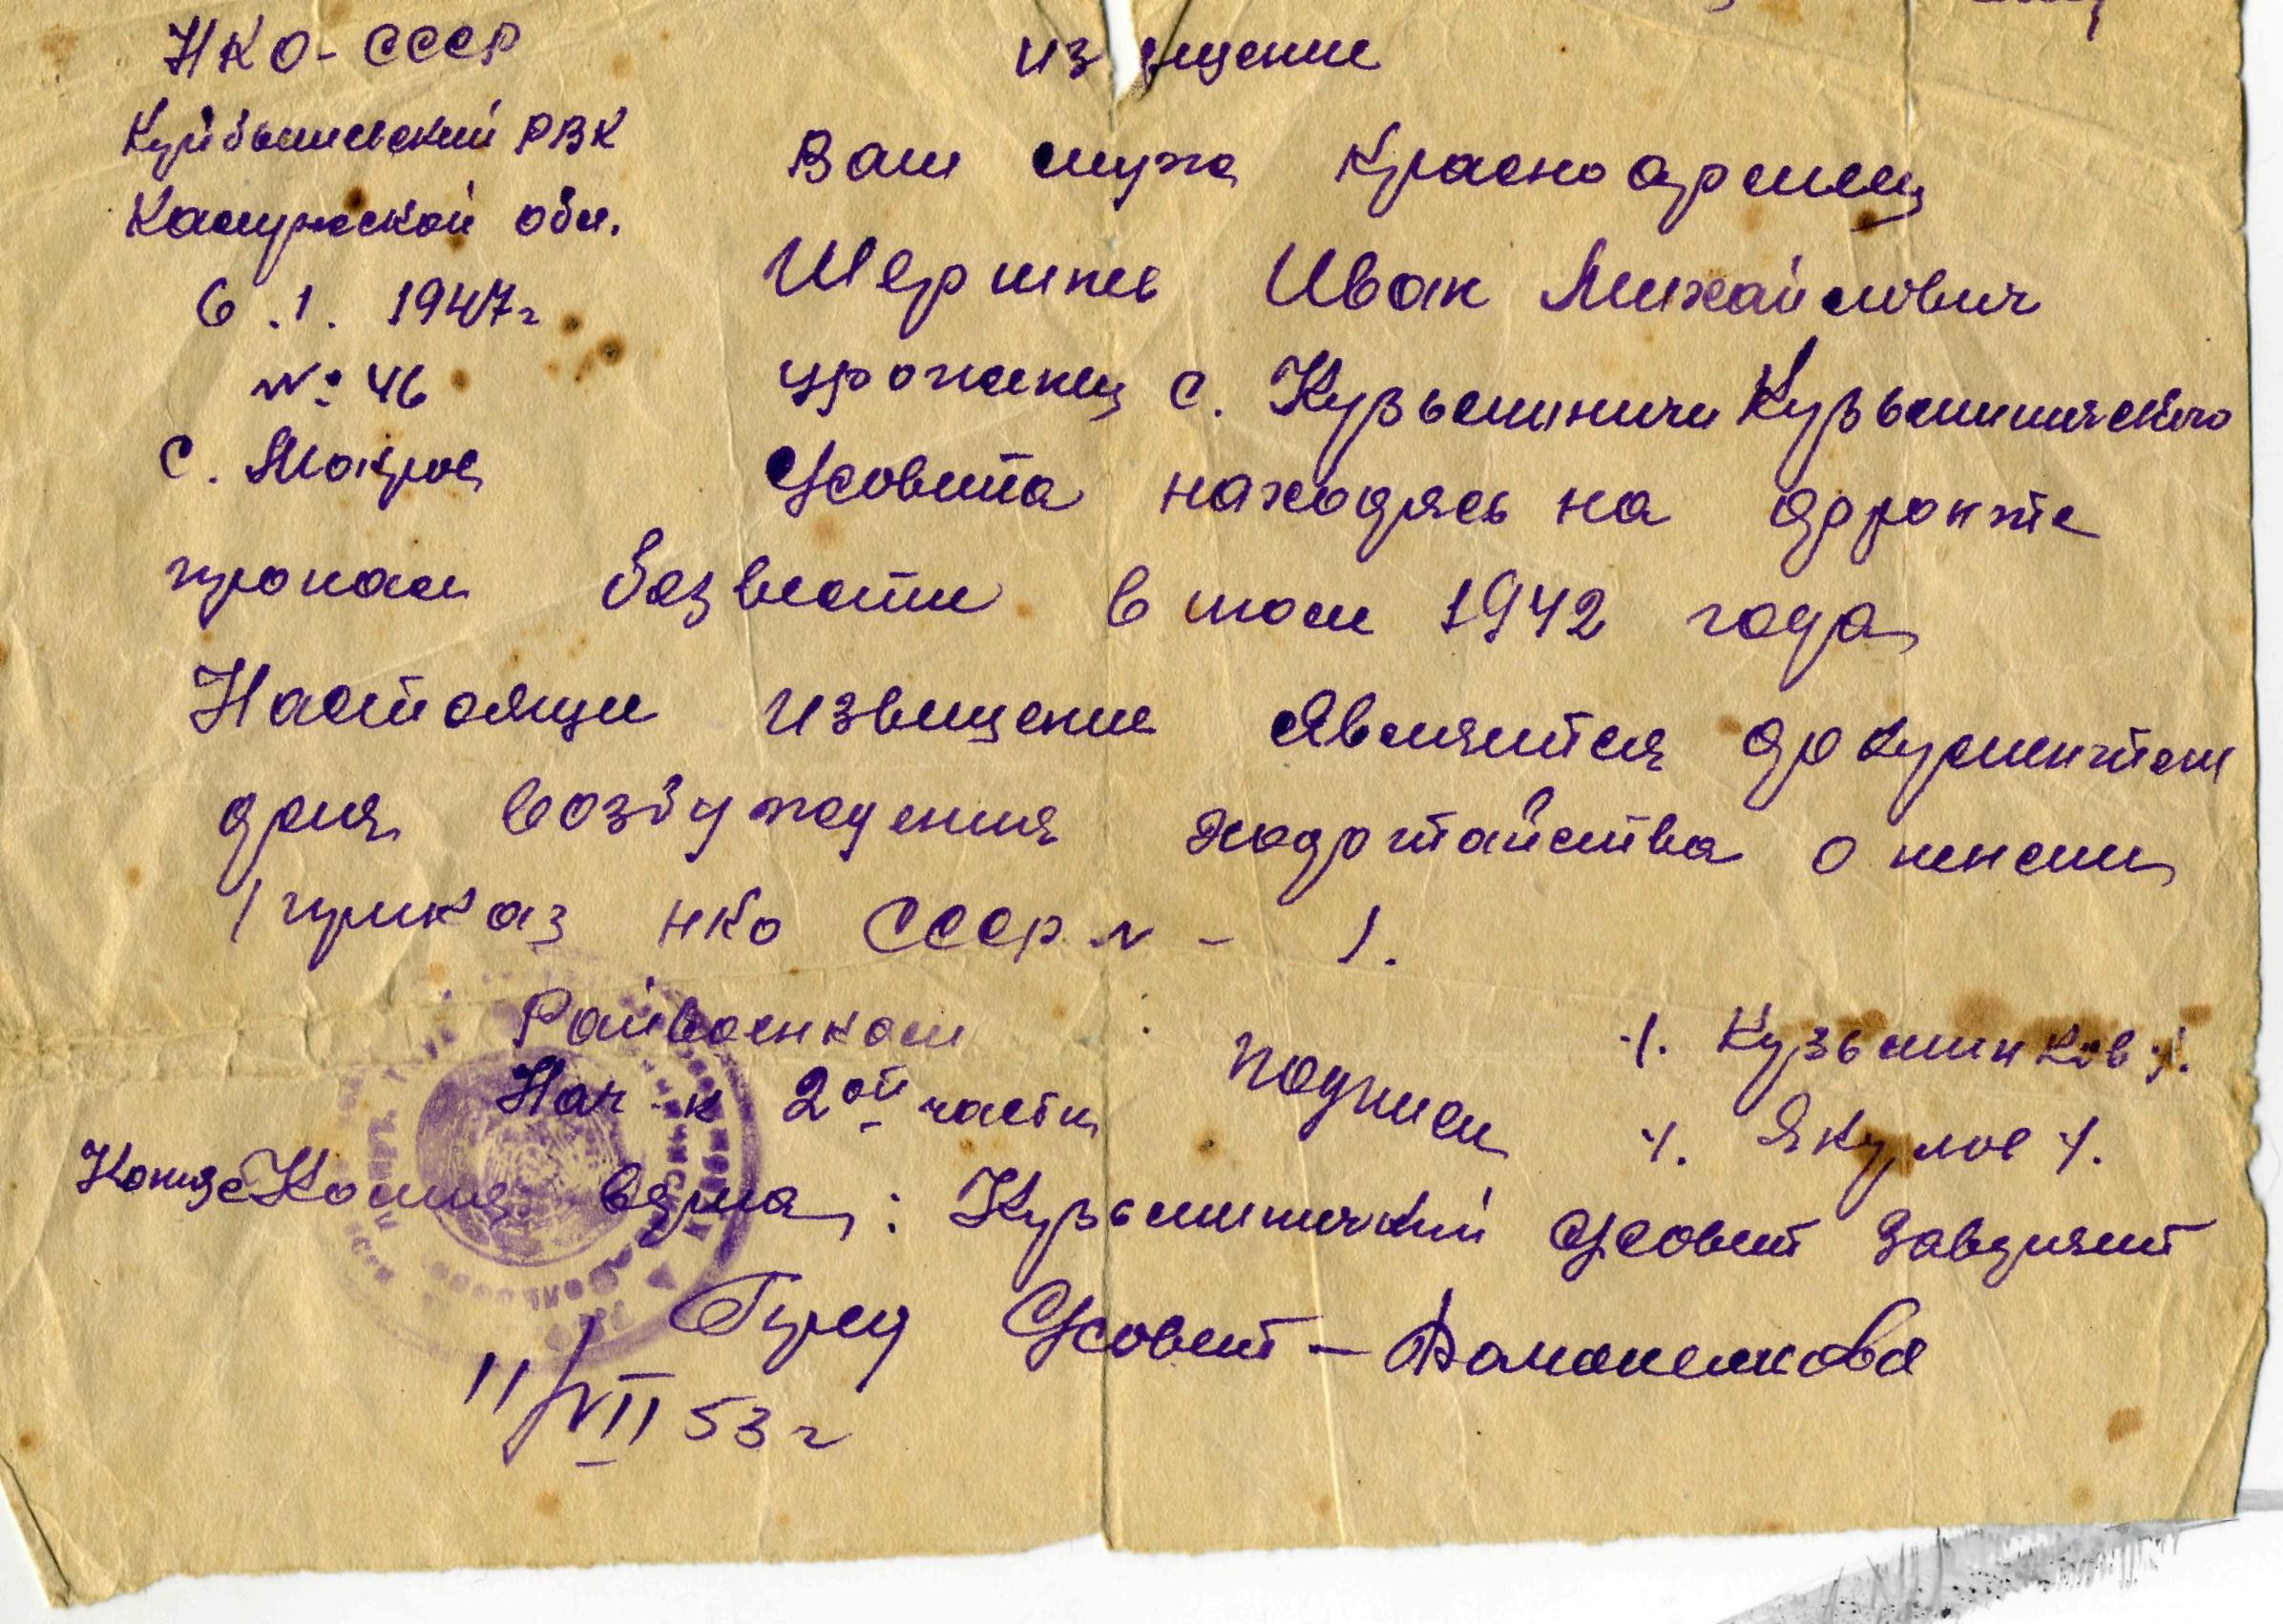 НКО-СССР
Куйбышевский РВК
Калужской обл.
6.1. 1947г
№ 46
с. Мокрое
извещение
Ваш муж красноармеец
Иван Михайлович
уроженец с. Кузьминичи Кузьминического
С/совета находясь на фронте
пропал безвести в мае 1942 года
Настояще извещение является документом
для возбуждения ходотайства о пенсии
/приказ НКО СССР № - /.
Райвоенком /. Кузьминков /.
Нач-к 2ой части подписи /. Якулов /.
Копия верна: Кузьминичский С/совет заверяет
Пред С/совет –
11/VII 53 г